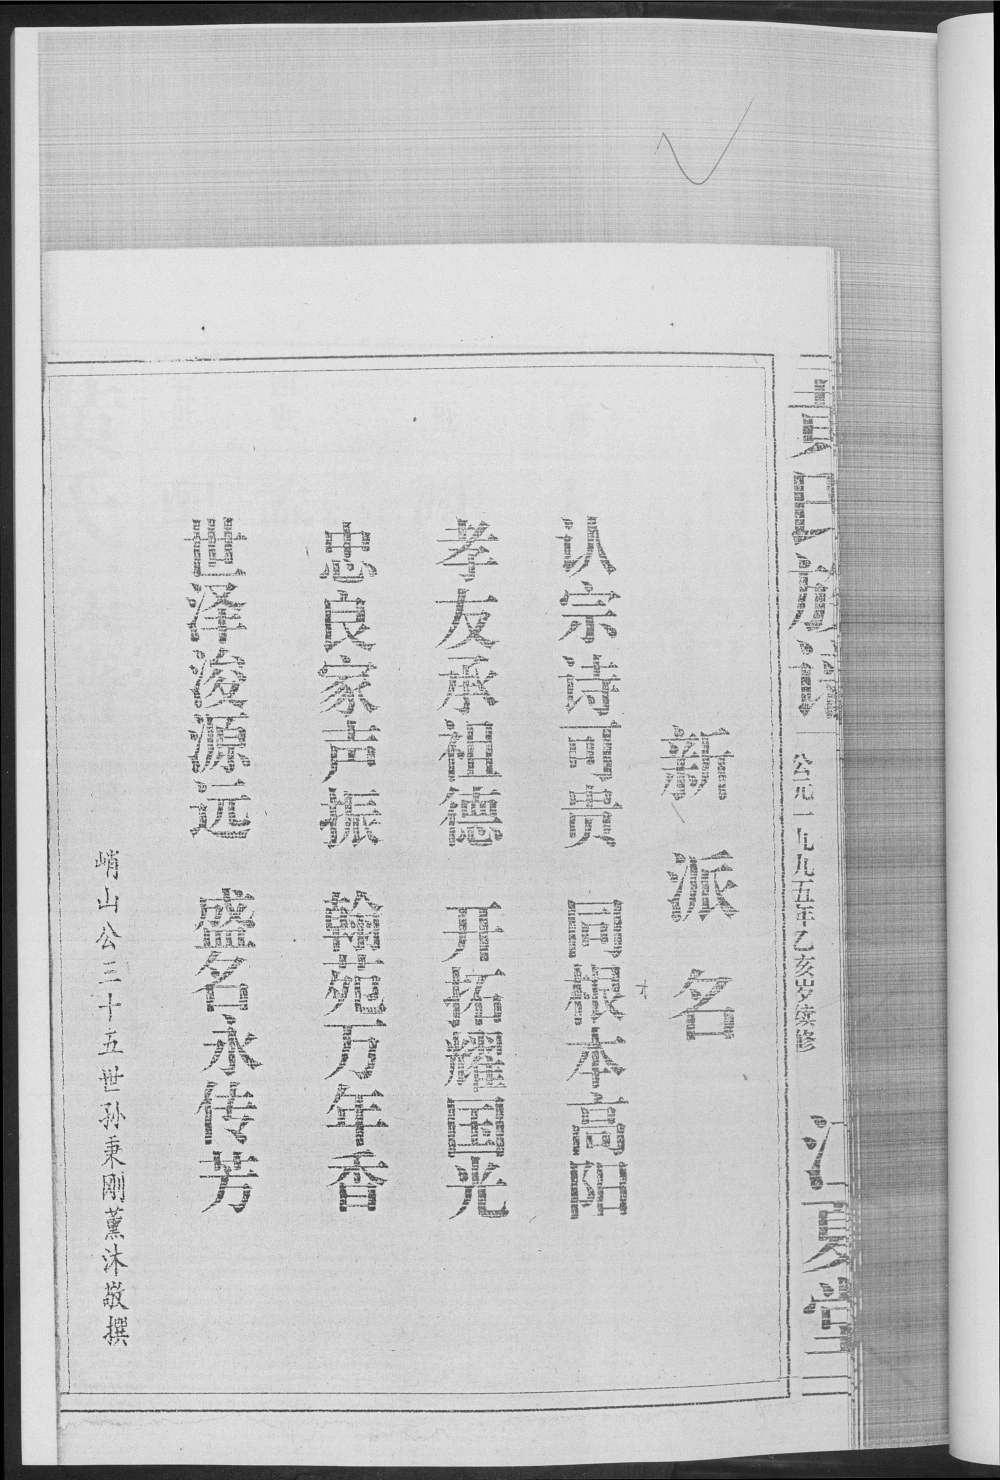 黄氏族谱
公元一九九五年乙亥岁续修
江夏堂
新派名
认宗诗可贵 同根本高阳
孝友承祖德 开拓耀国光
忠良家声振 翰苑万年香
世泽浚源远 盛名永传芳
峭山公三十五世孙秉刚薰沐敬撰